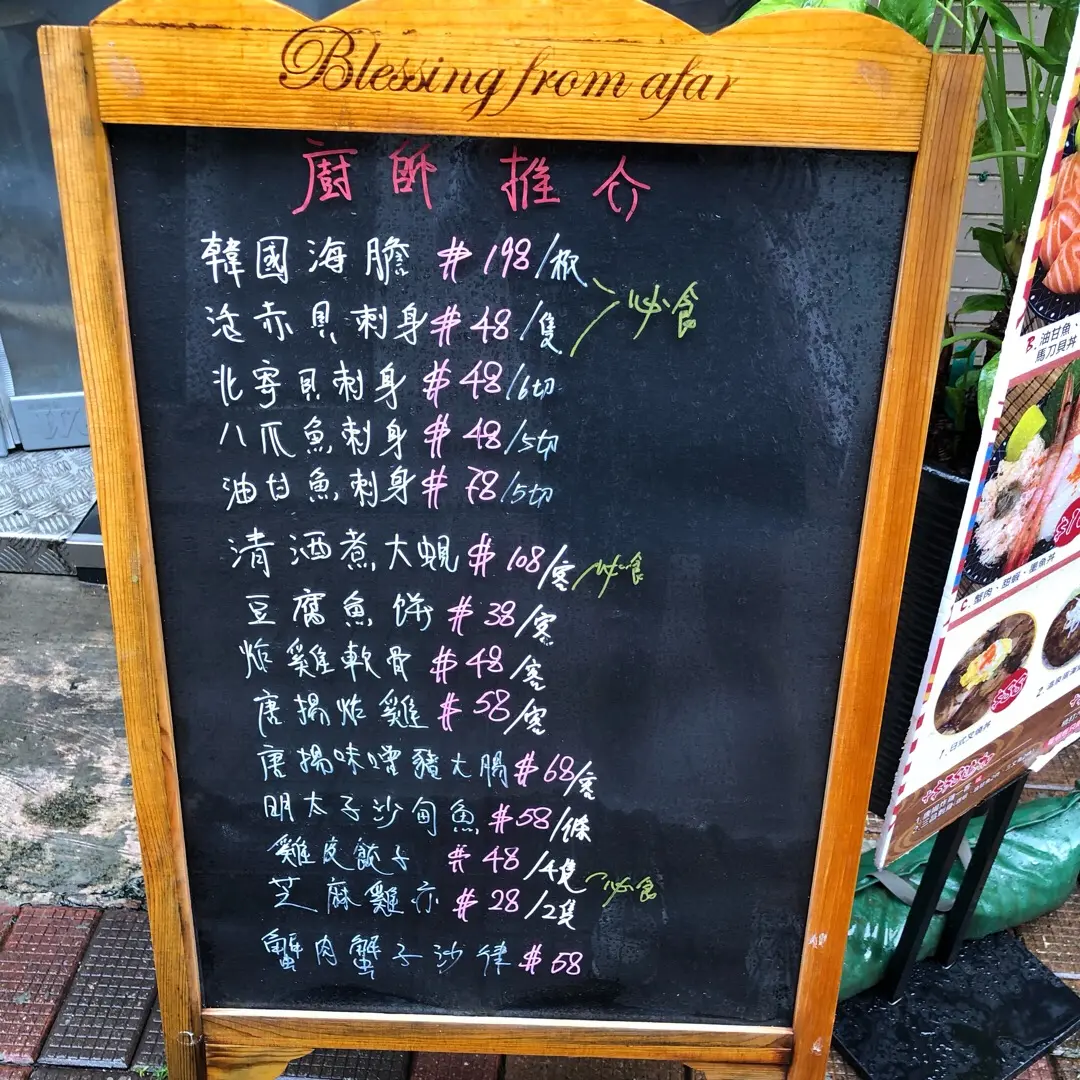 Blessing from afar
廚師 推介
韓國海膽 $198/板 必食
活赤貝刺身 $48/隻
北寄貝刺身 $48/6切
八爪魚刺身 $48/5切
油甘魚刺身 $78/5切
清酒煮大蜆 $108/客 必食
豆腐魚餅 $38/客
炸雞軟骨 $48/客
唐揚炸雞 $58/客
唐揚味噌豬大腸 $68/客
明太子沙甸魚 $58/條
雞皮餃子 $48/4隻 必食
芝麻雞亦 $28/2隻
蟹肉蟹子沙律 $58
B. 油甘魚、
馬刀貝丼
C. 蟹肉、甜蝦、墨魚丼
$55
1. 日式叉燒丼
2.